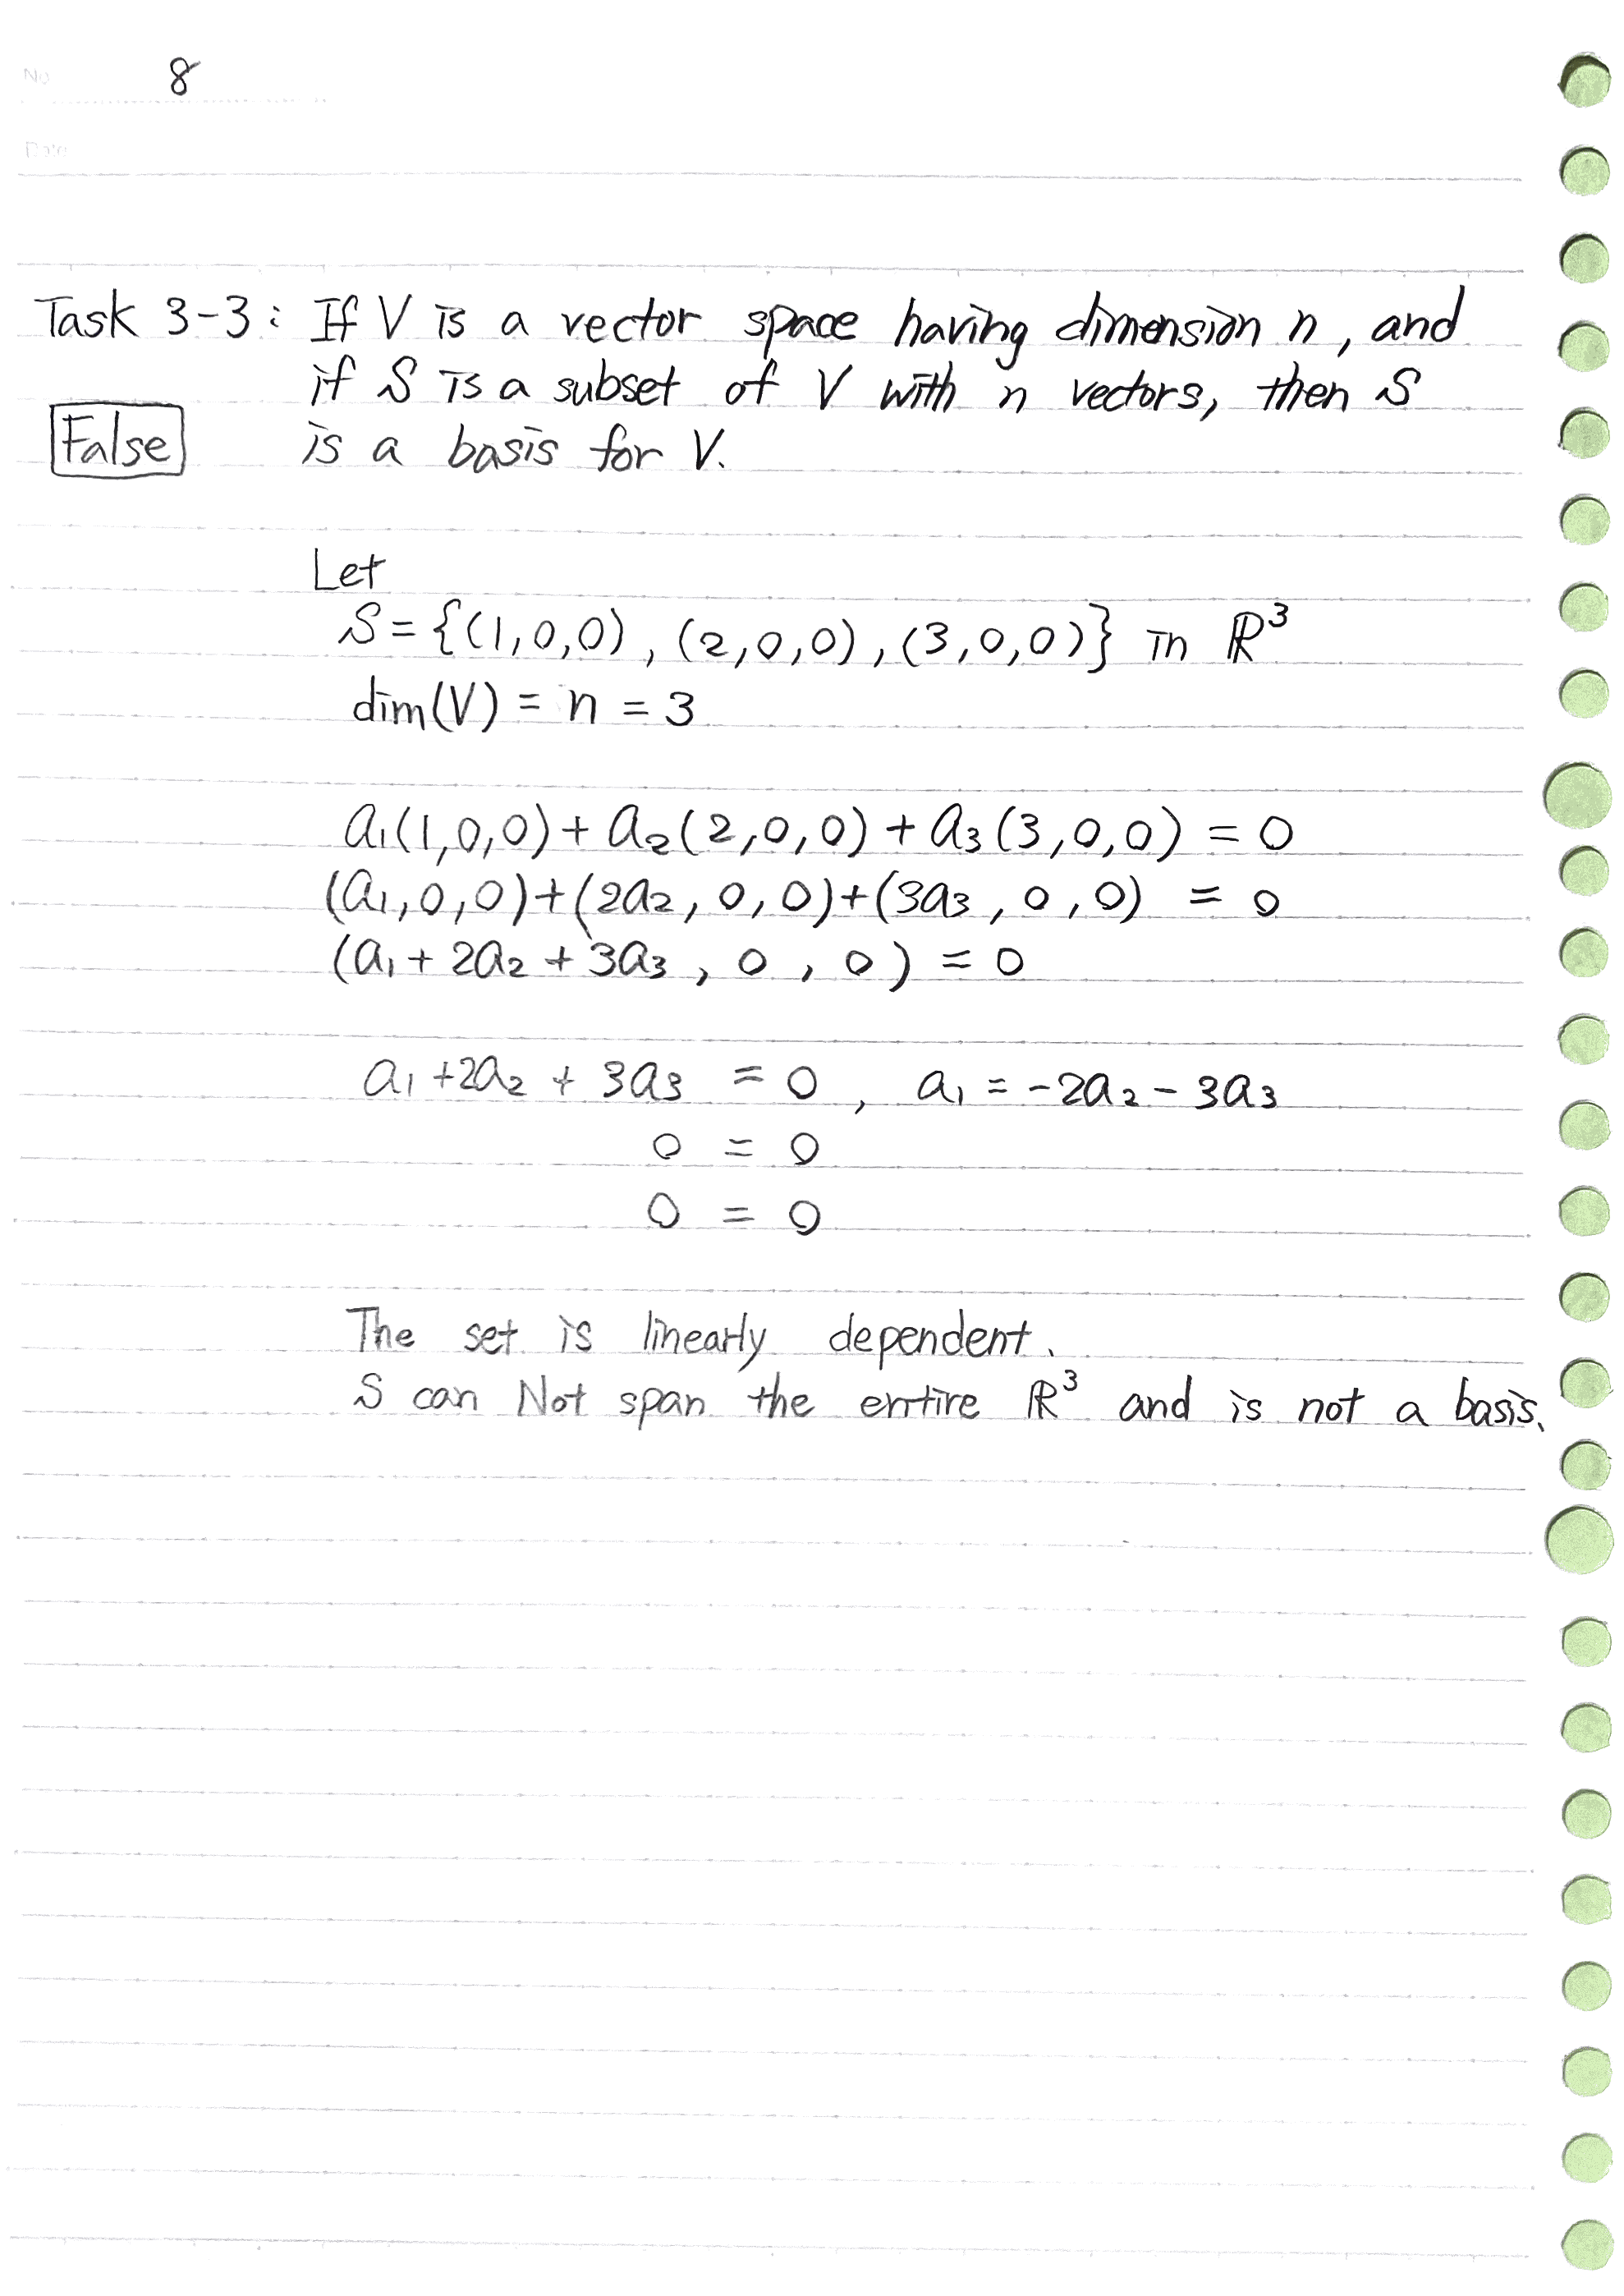 No. 8
Date
Task 3-3: If V is a vector space having dimension n, and
if S is a subset of V with n vectors, then S
False is a basis for V.
Let
S = {(1,0,0), (2,0,0), (3,0,0)} in ℝ³
dim(V) = n = 3
a₁(1,0,0) + a₂(2,0,0) + a₃(3,0,0) = 0
(a₁,0,0)+(2a₂,0,0)+(3a₃,0,0) = 0
(a₁ + 2a₂ + 3a₃, 0, 0) = 0
a₁ + 2a₂ + 3a₃ = 0, a₁ = -2a₂ - 3a₃
0 = 0
0 = 0
The set is linearly dependent.
S can Not span the entire ℝ³ and is not a basis.